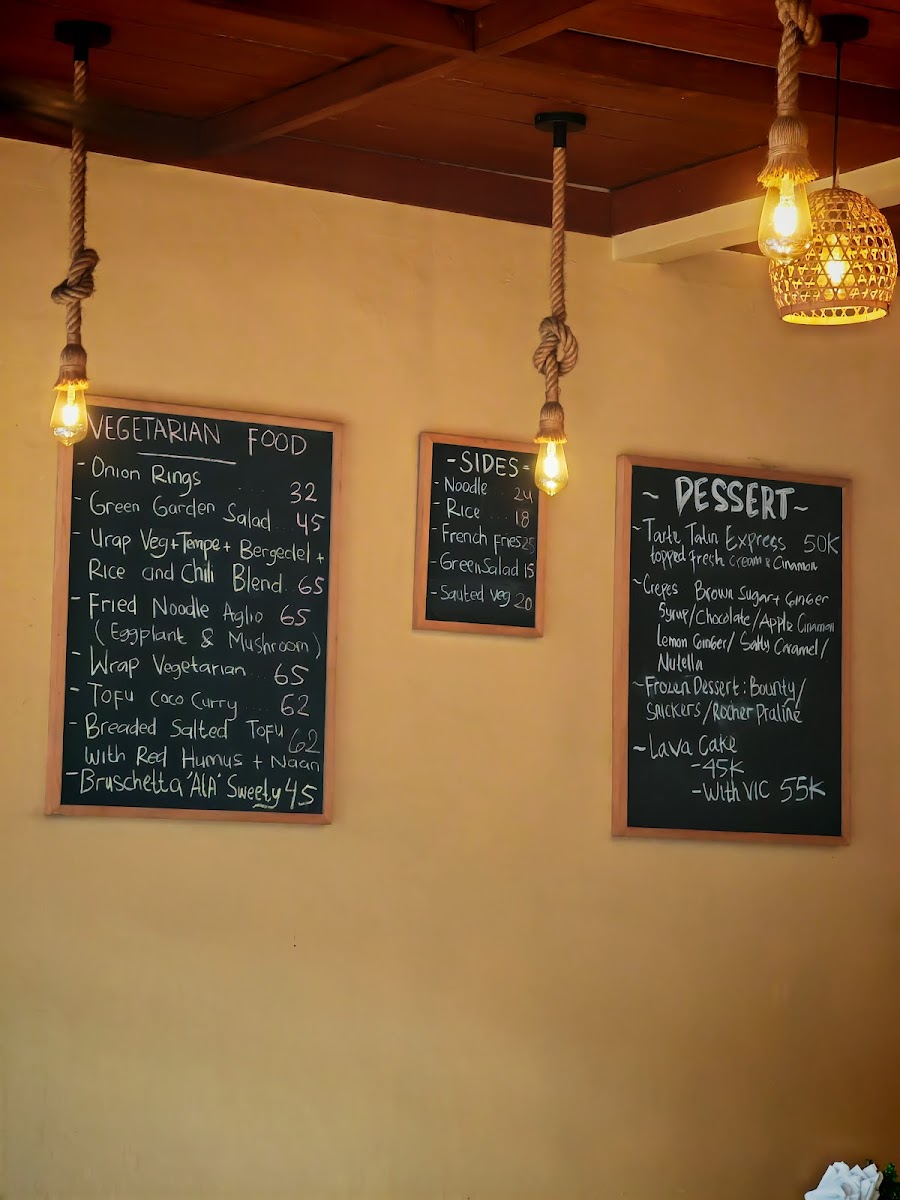 VEGETARIAN FOOD
- Onion Rings .... 32
- Green Garden Salad... 45
- Urap Veg+Tempe+ Bergedel +
Rice and Chili Blend. 65
- Fried Noodle Aglio 65
(Eggplant & Mushroom)
- Wrap Vegetarian.... 65
- TOFU COCO Curry.... 62
- Breaded Salted Tofu 62
With Red Humus + Naan
- Bruschetta 'AlA' Sweety 45
- SIDES -
- Noodle ... 24
- Rice ... 18
- French Fries 25
- Green Salad 15
- Sauted Veg 20
~ DESSERT ~
~ Tarte Tatin Express 50K
topped fresh cream & Cinnamon
~ Crepes Brown Sugar + Ginger
Syrup/Chocolate/Apple Cinamon
Lemon Ginger/ Salty Caramel/
Nutella
~ Frozen Dessert: Bounty/
Snickers/Rocher Praline
~ Lava Cake
- 45K
- With VIC 55K